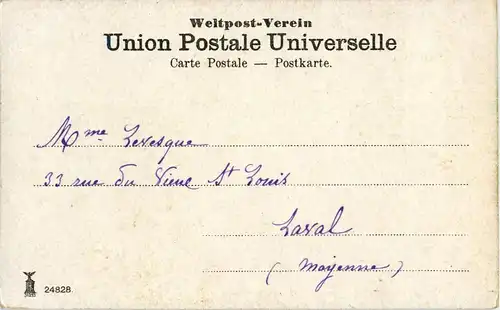 Weltpost-Verein
Union Postale Universelle
Carte Postale — Postkarte.
Mme Levesque
33 rue du Vieux St Louis
Laval
(Mayenne)
24828